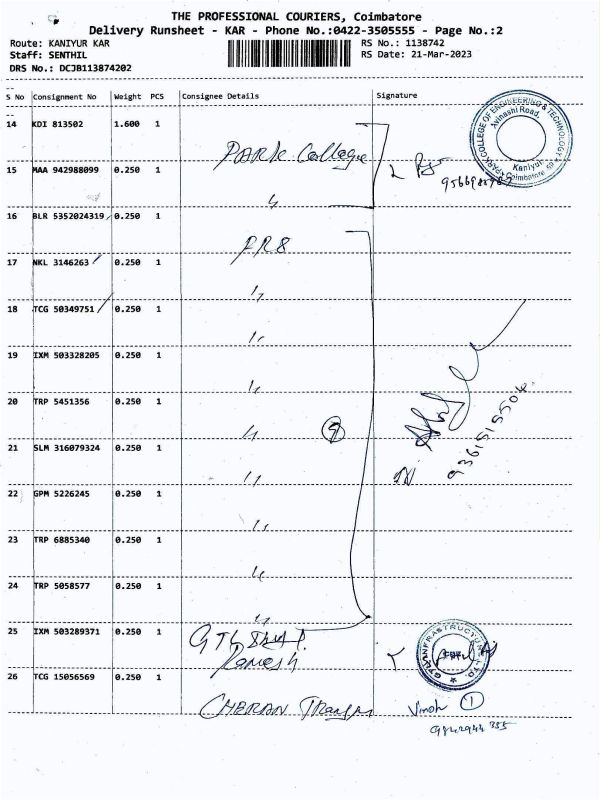 THE PROFESSIONAL COURIERS, Coimbatore
Delivery Runsheet - KAR - Phone No.:0422-3505555 - Page No.:2
Route: KANIYUR KAR
RS No.: 1138742
Staff: SENTHIL
RS Date: 21-Mar-2023
DRS No.: DCJB113874202
S No Consignment No Weight PCS Consignee Details Signature
14 KDI 813502 1.600 1
PARK College
PARK COLLEGE OF ENGINEERING & TECHNOLOGY
Avinashi Road,
Kaniyur
Coimbatore
15 MAA 942988099 0.250 1
16 BLR 5352024319 0.250 1
17 NKL 3146263 0.250 1
18 TCG 50349751 0.250 1
19 IXM 503328205 0.250 1
20 TRP 5451356 0.250 1
9361515504
21 SLM 316079324 0.250 1
22 GPM 5226245 0.250 1
23 TRP 6885340 0.250 1
24 TRP 5058577 0.250 1
25 IXM 503289371 0.250 1
Ramesh
INFRASTRUCTURE LTD.
26 TCG 15056569 0.250 1
CHERAN
1
9842944355